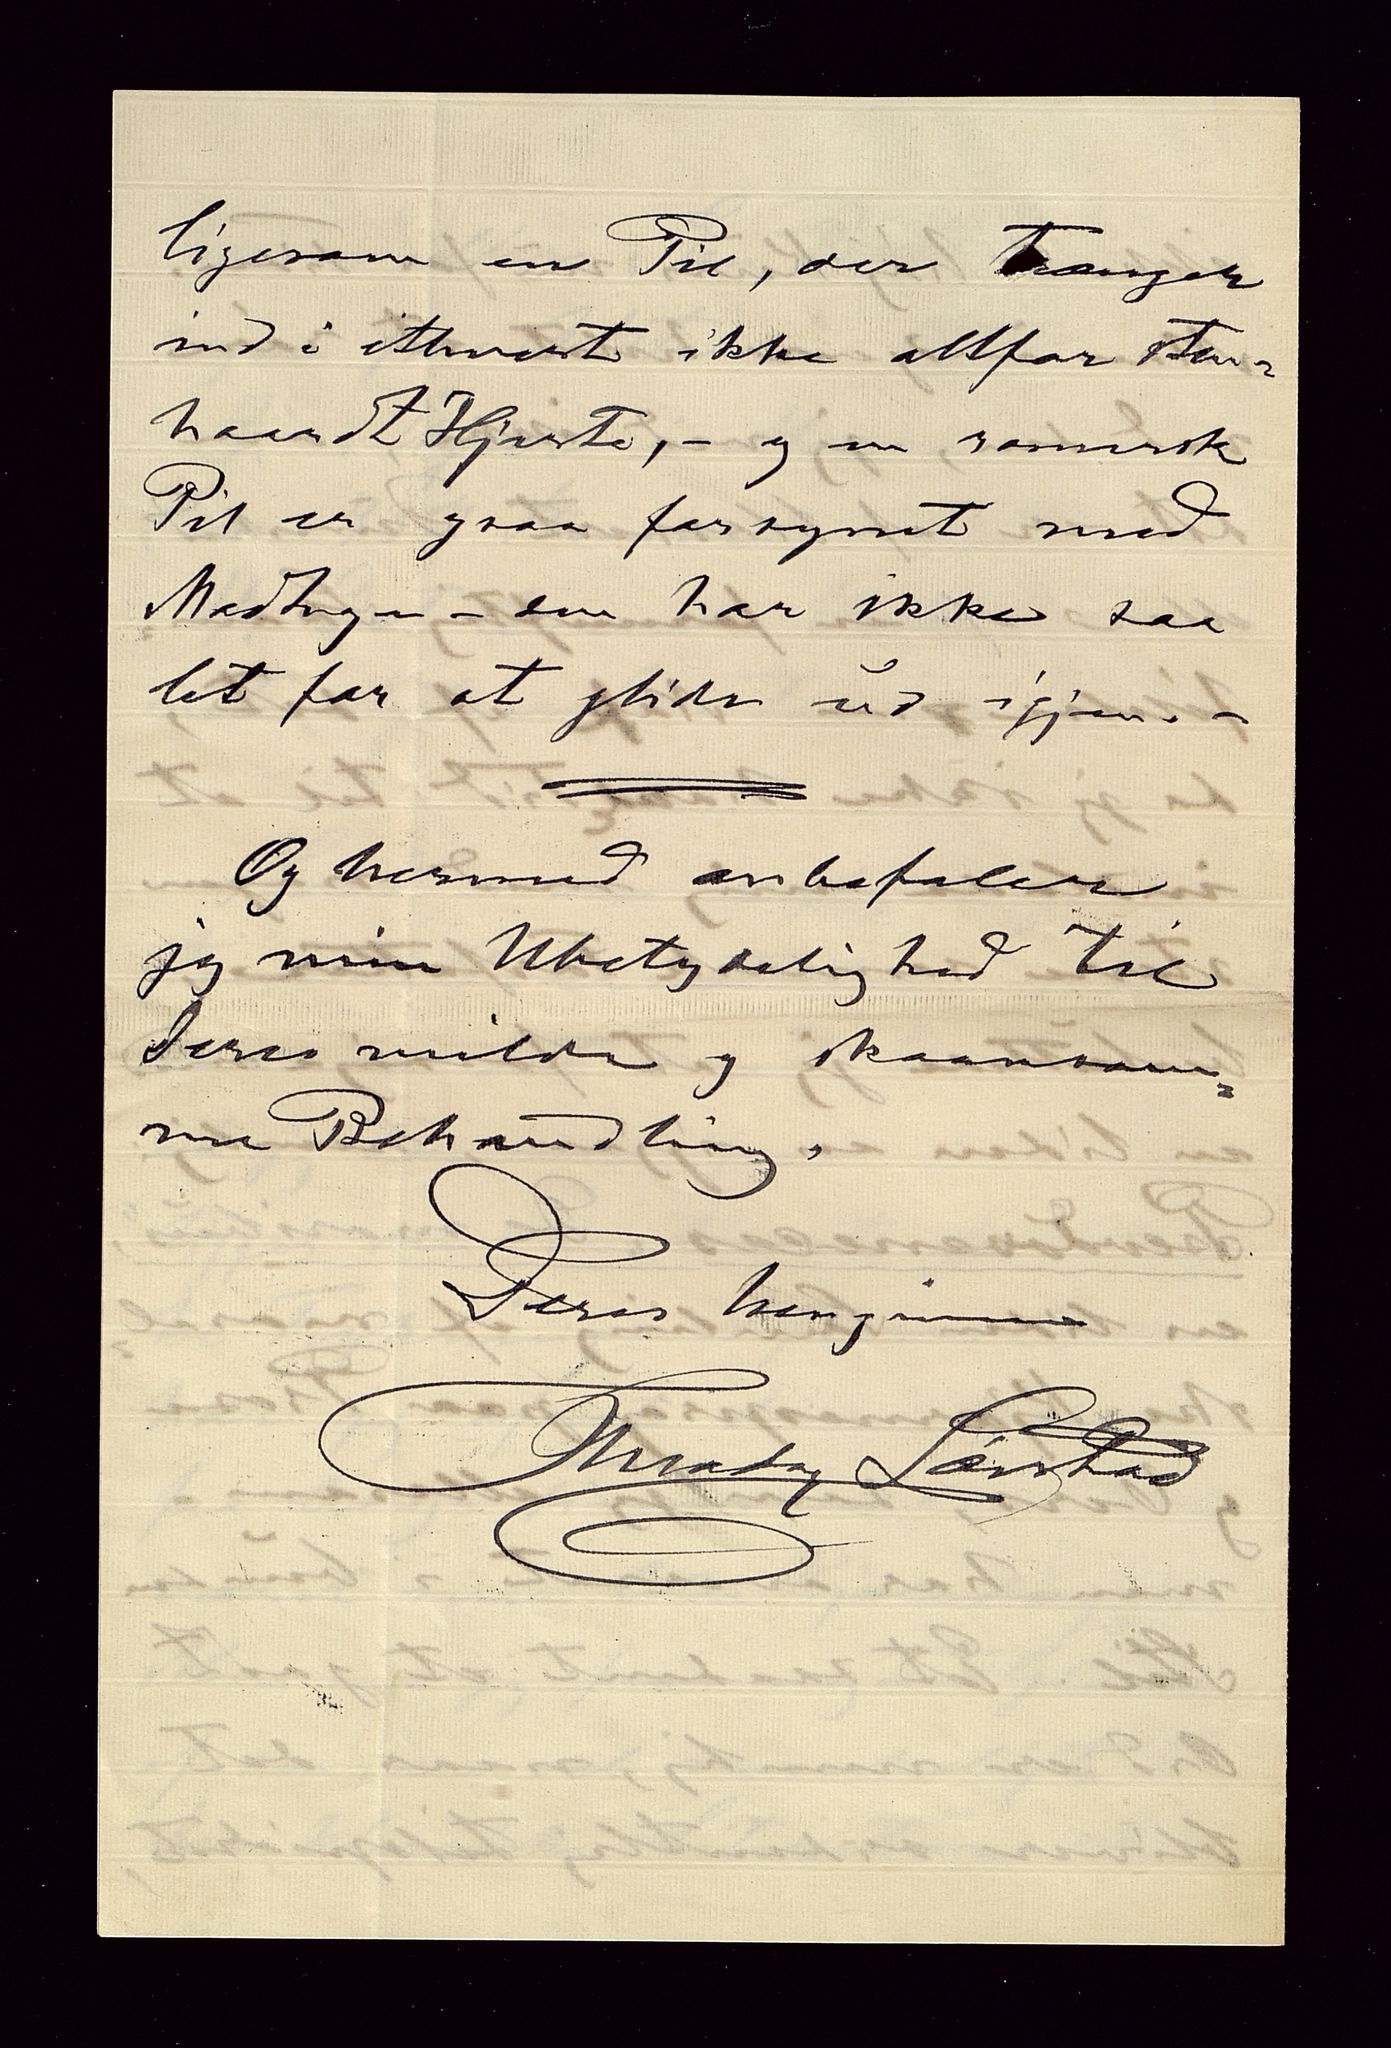 ligesom en Pil, der trænger
ind i ethvert ikke altfor sten-
haardt Hjerte, - og en romersk
Pil er gjerne forsynet med
Modhager - den har ikke saa
let for at glide ud igjen. -
Og hermed anbefaler
jeg min Ubetydelighed til
Deres milde og skaansom-
me Behandling,
Deres hengivne
Lærstad